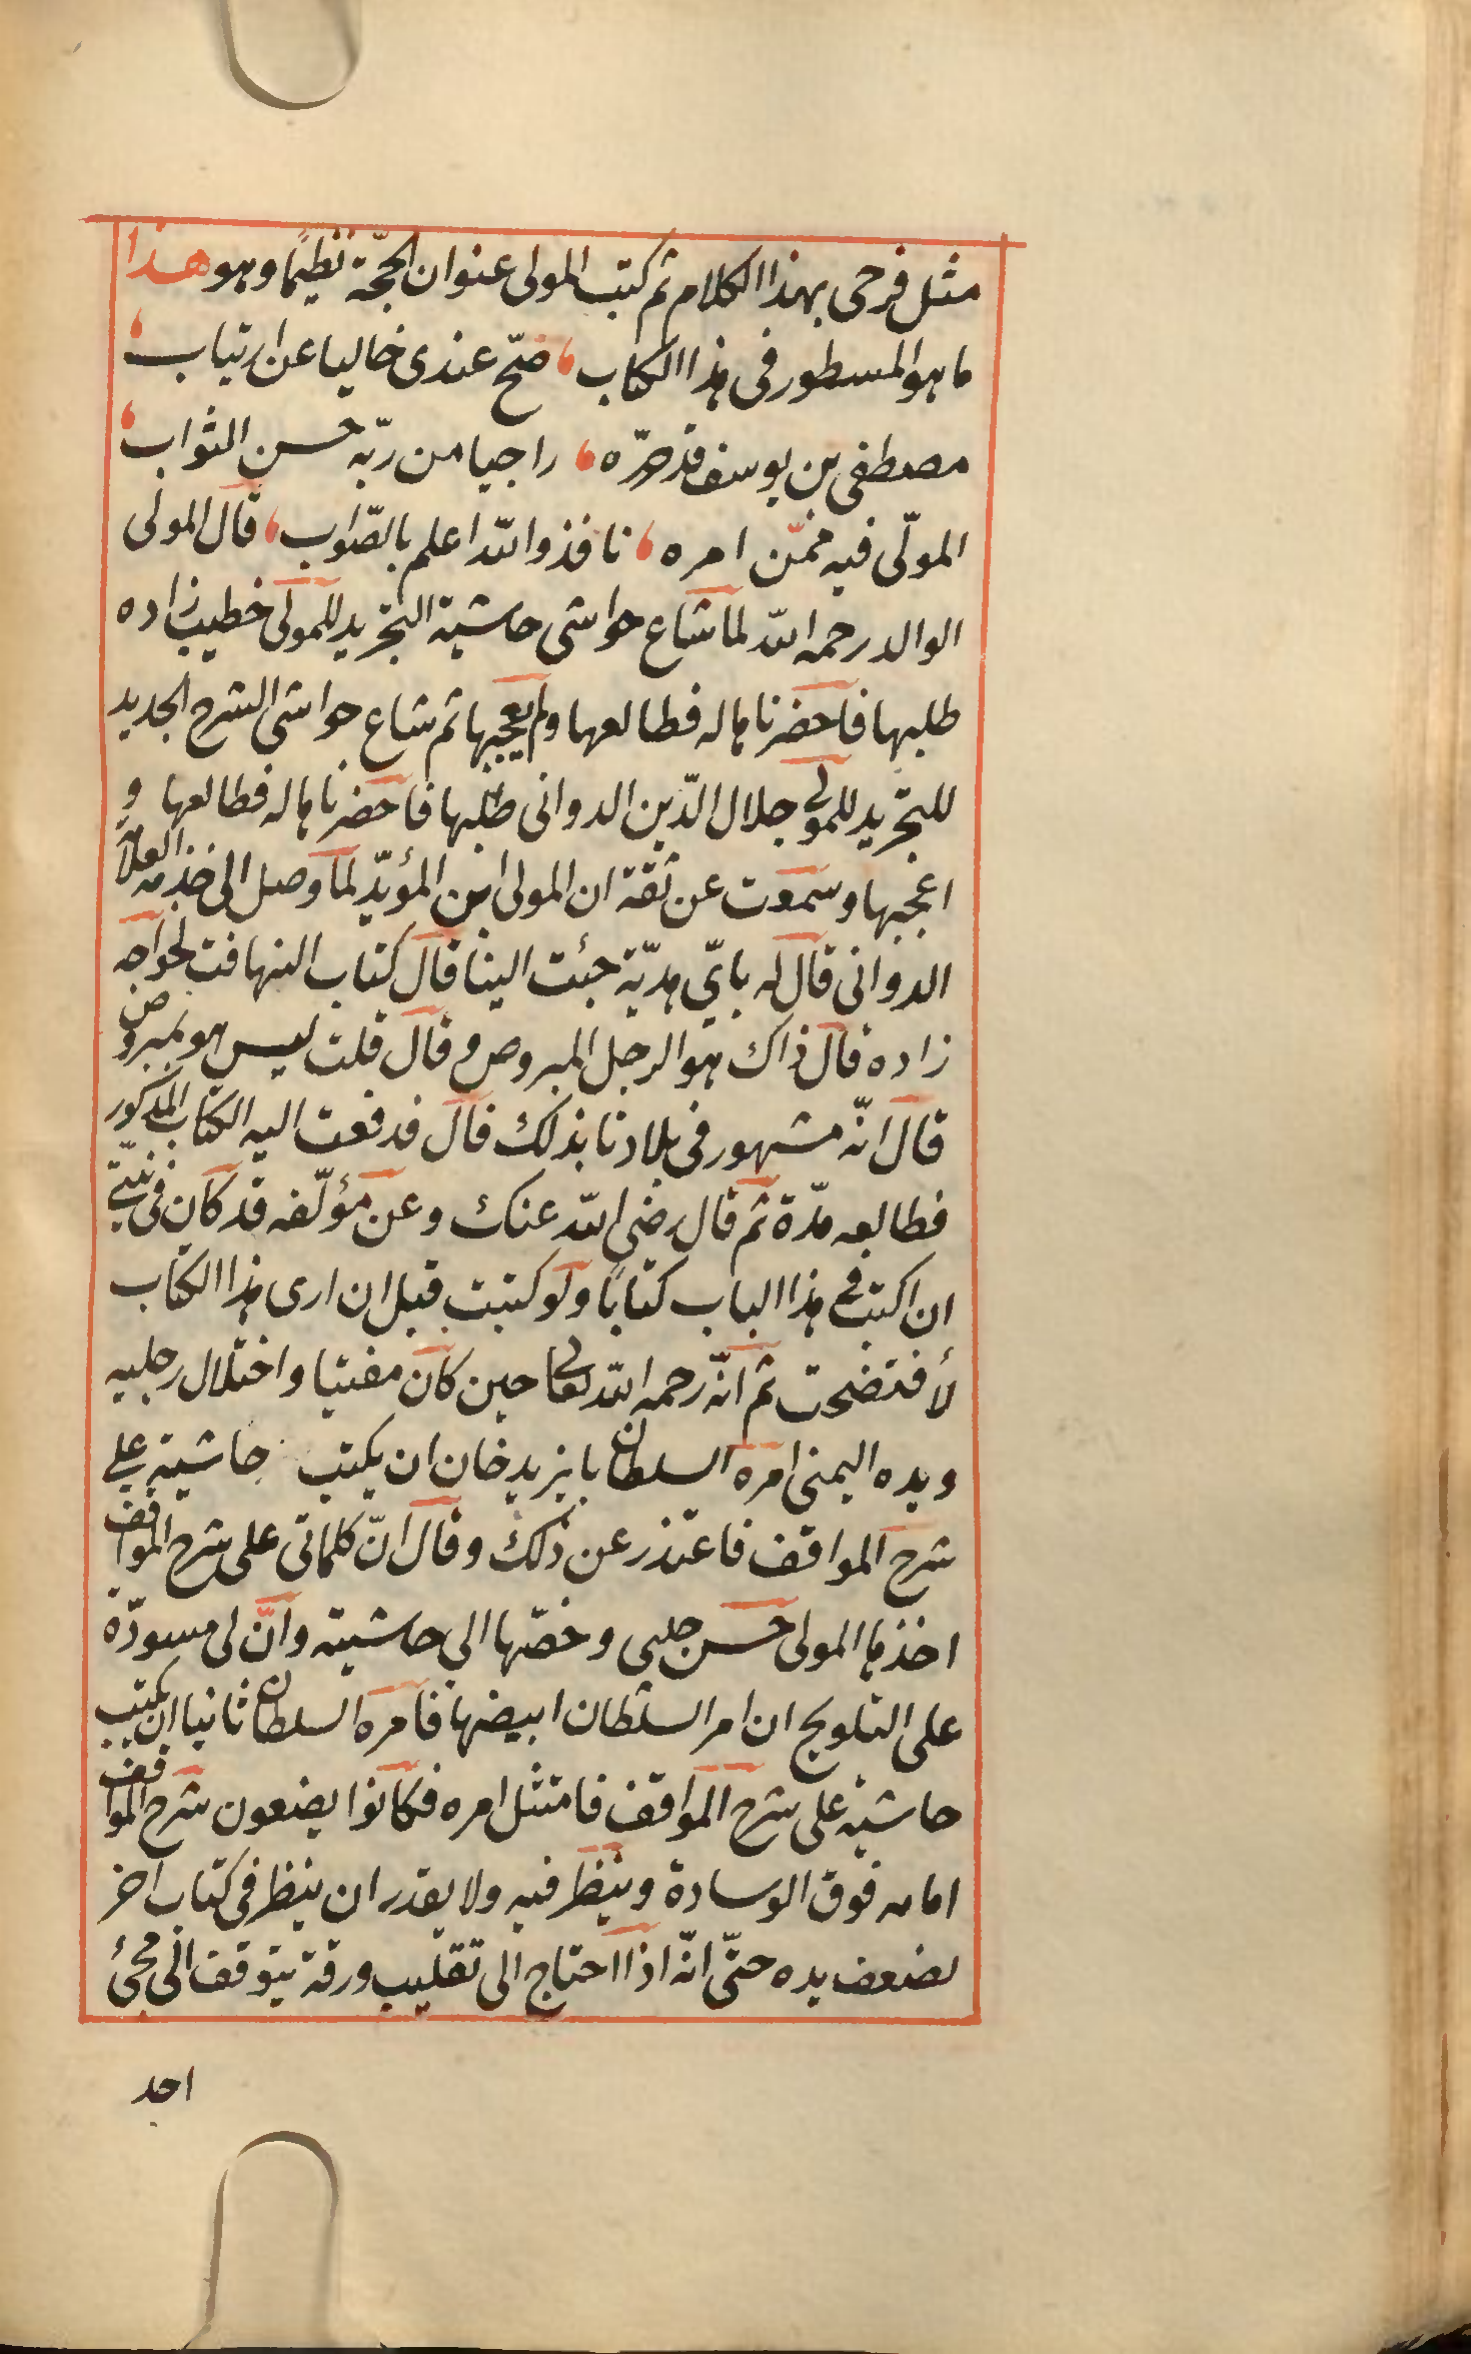 مثل فرحى بهذا الكلام ثم كتب المولى عنوان الحجّة نظيمًا وهو هذا
ما هو المسطور فى هذا الكتاب ، صحّ عندى خاليا عن ارتياب ،
مصطفى بن يوسف قد حرّره ، راجيا من ربّه حسن الثواب ،
المولّى فيه ممّن امره ، نافذ والله اعلم بالصّواب ، قال المولى
الوالد رحمه الله لما شاع حواشى حاشية التجريد للمولى خطيب زاده
طلبها فاحضرناها له فطالعها ولم يعجبها ثم شاع حواشى الشرح الجديد
للتجريد للمولى جلال الدّين الدوانى طلبها فاحضرناها له فطالعها و
اعجبها وسمعت عن ثقة ان المولى ابن المؤيّد لما وصل الى خدمة العلامة
الدوانى قال له باىّ هديّة جئت الينا قال كتاب التهافت لخواجه
زاده قال ذاك هو الرجل المبروص قال قلت ليس هو بمبروص
قال انّه مشهور فى بلادنا بذلك قال فدفعت اليه الكتاب المذكور
فطالعه مدّة ثم قال رضى الله عنك وعن مؤلّفه قد كان فى نيّتى
ان اكتب فى هذا الباب كتابًا ولو كتبت قبل ان ارى هذا الكتاب
لأفتضحت ثم انّه رحمه الله تعالى حين كان مفتيا واختلال رجليه
ويده اليمنى امره السلطان بايزيد خان ان يكتب حاشية على
شرح المواقف فاعتذر عن ذلك وقال انّ كلماتى على شرح المواقف
اخذها المولى حسن جلبى وضمّها الى حاشيته وانّ لى مسودّة
على التلويح ان امر السلطان ابيضها فامره السلطان ثانيا ان يكتب
حاشية على شرح المواقف فامتثل امره فكانوا يضعون شرح المواقف
امامه فوق الوسادة وينظر فيه ولا يقدر ان ينظر فى كتاب اخر
لضعف يده حتّى انّه اذا احتاج الى تقليب ورقة يتوقف الى مجئ
احد